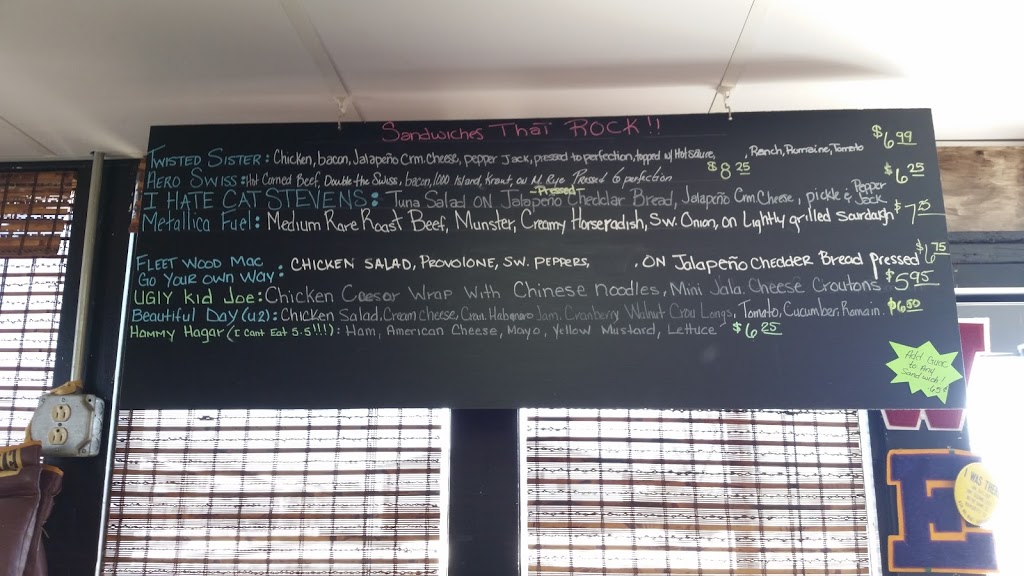 Sandwiches That ROCK!!
TWISTED SISTER: Chicken, bacon, Jalapeño Crm. Cheese, pepper Jack, pressed to perfection, topped w/ Hot Sauce, Ranch, Romaine, Tomato $6.99
AERO SWISS: Hot Corned Beef, Double the Swiss, bacon, 1000 Island, Kraut, on M. Rye Pressed to perfection $8.25
$6.25
I HATE CAT STEVENS: Tuna Salad ON Jalapeño Cheddar Bread, Jalapeño Crm Cheese, pickle & Pepper Jack
-Pressed
Metallica Fuel: Medium Rare Roast Beef, Munster, Creamy Horseradish, Sw. Onion, on Lightly grilled Sourdough $7.25
FLEET WOOD MAC
GO YOUR OWN WAY: CHICKEN SALAD, PROVOLONE, SW. PEPPERS, . ON Jalapeño Chedder Bread pressed $6.75
UGLY Kid Joe: Chicken Caesar Wrap With Chinese noodles, Mini Jala. Cheese Croutons $5.95
Beautiful Day (U2): Chicken Salad, Cream cheese, Cran. Habanero Jam, Cranberry Walnut Tomato, Cucumber, Romain. $6.50
Hammy Hagar (I Cant Eat 5.5!!!): Ham, American Cheese, Mayo, Yellow Mustard, Lettuce $6.25
Add Guac
to Any
Sandwich!
.65¢
W
E
I WAS THERE